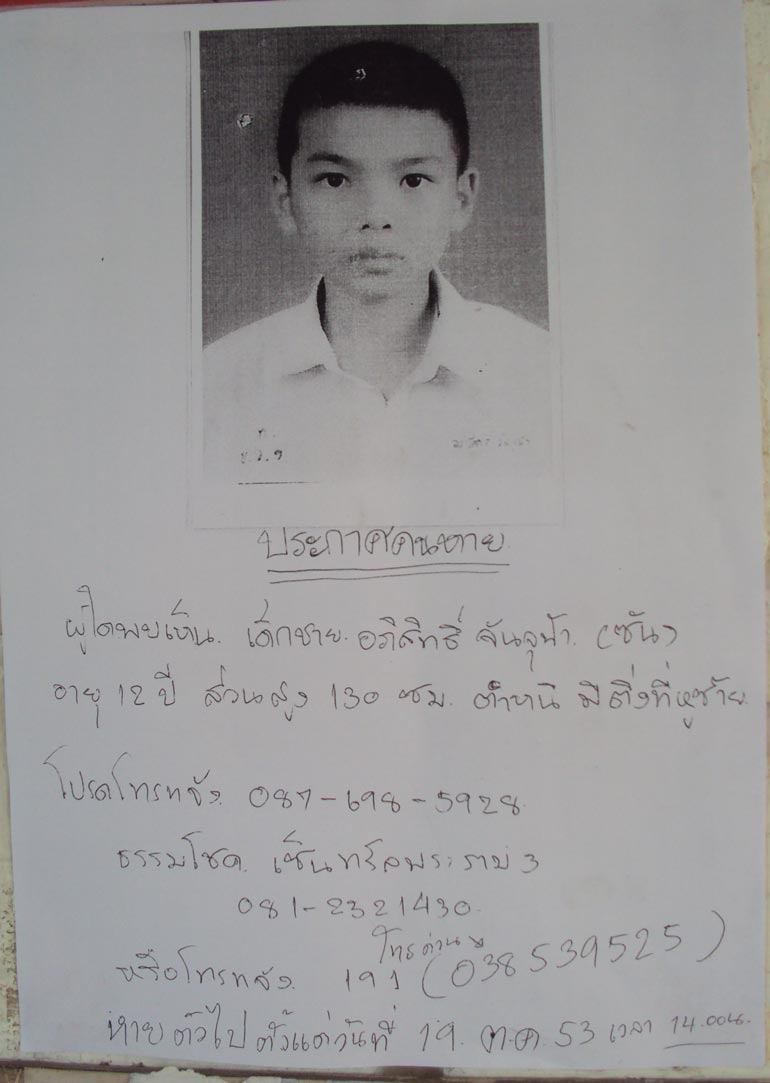 ประกาศคนหาย
ผู้ใดพบเห็น. เด็กชาย. อภิสิทธิ์ จันจุฬา. (ซัน)
อายุ 12 ปี ส่วนสูง 130 ซม. ตำหนิ มีติ่งที่หูซ้าย
โปรดโทรแจ้ง 087-698-5928
ธรรมโชค. เซ็นทรัลพระราม 3
081-2321430
โทรด่วน
หรือโทรแจ้ง. 191 (038539525)
หายตัวไป ตั้งแต่วันที่ 19. ต.ค. 53 เวลา 14.00น.